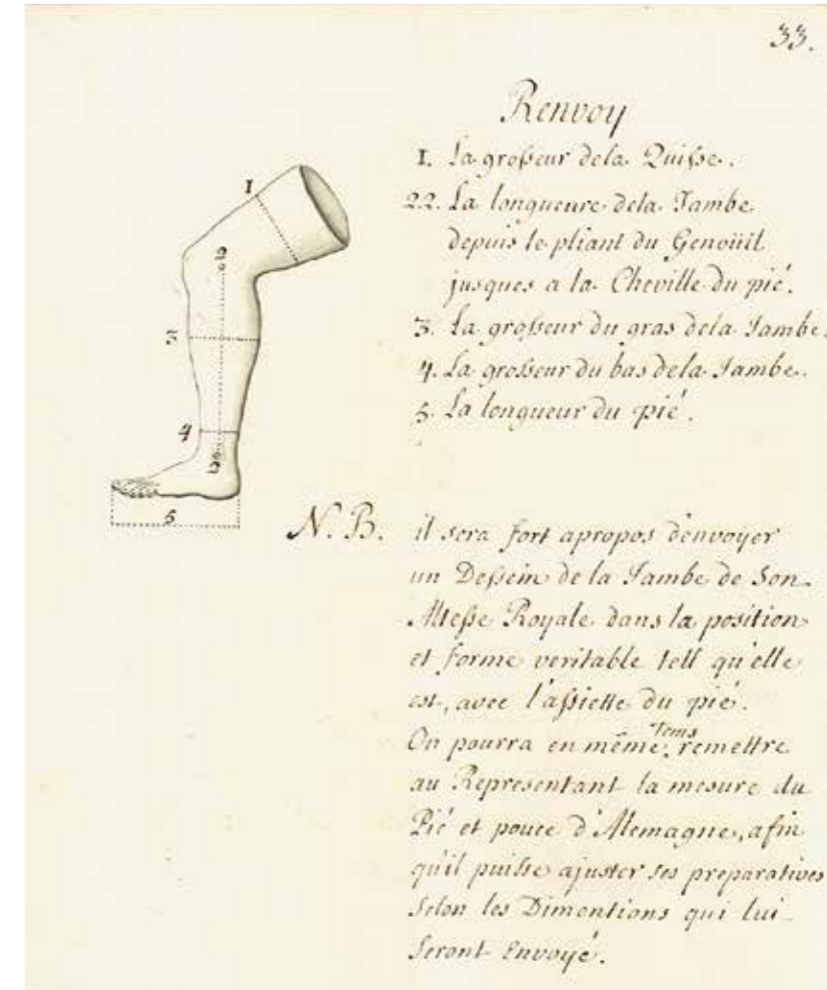 33.
Renvoy
1. La grosseur dela Quisse.
22. La longueure dela Jambe
depuis le pliant du Genoüil
jusques a la Cheville du pié.
3. La grosseur du gras dela Jambe.
4. La grosseur du bas dela Jambe.
5. La longueur du pié.
1
2
3
4
2
5
N. B. il sera fort apropos d'envoyer
un Dessein de la Jambe de Son
Altesse Royale dans la position
et forme veritable tell qu'elle
est, avec l'assiette du pié.
On pourra en même Tems remettre
au Representant la mesure du
Pié et pouce d'Alemagne, afin
qu'il puisse ajuster ses preparatives
Selon les Dimentions qui lui
Seront Envoyé.